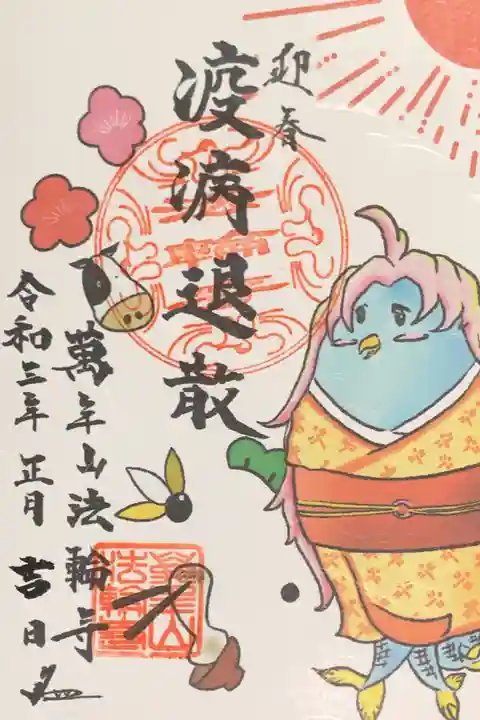 迎春
疫病退散
萬年山法輪寺
令和三年正月吉日